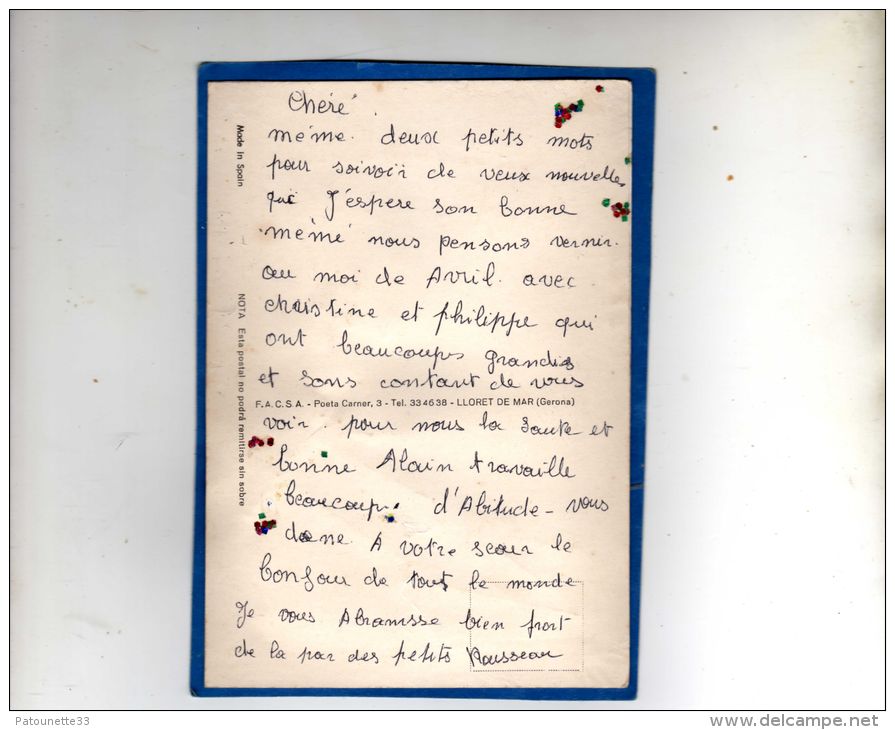 Cheré
mémé. deux petits mots
pour soivoir de veux nouvelles
qui J'éspere son bonne
mémé nous pensons vernir.
au moi de Avril. avec
christine et philippe qui
ont beaucoups grandis
et sons contant de vous
F.A.C.S.A. - Poeta Carner, 3 - Tel. 334638 - LLORET DE MAR (Gerona)
voir. pour nous la sante et
bonne Alain travaille
beaucoup. d'Abitude - vous
done. A votre seour le
bonjour de tout le monde
Je vous Abramsse bien frort
de la par des petits Rousseau
Made in Spain
NOTA Esta postal no podrá remitirse sin sobre
Patounette33
www.delcampe.net